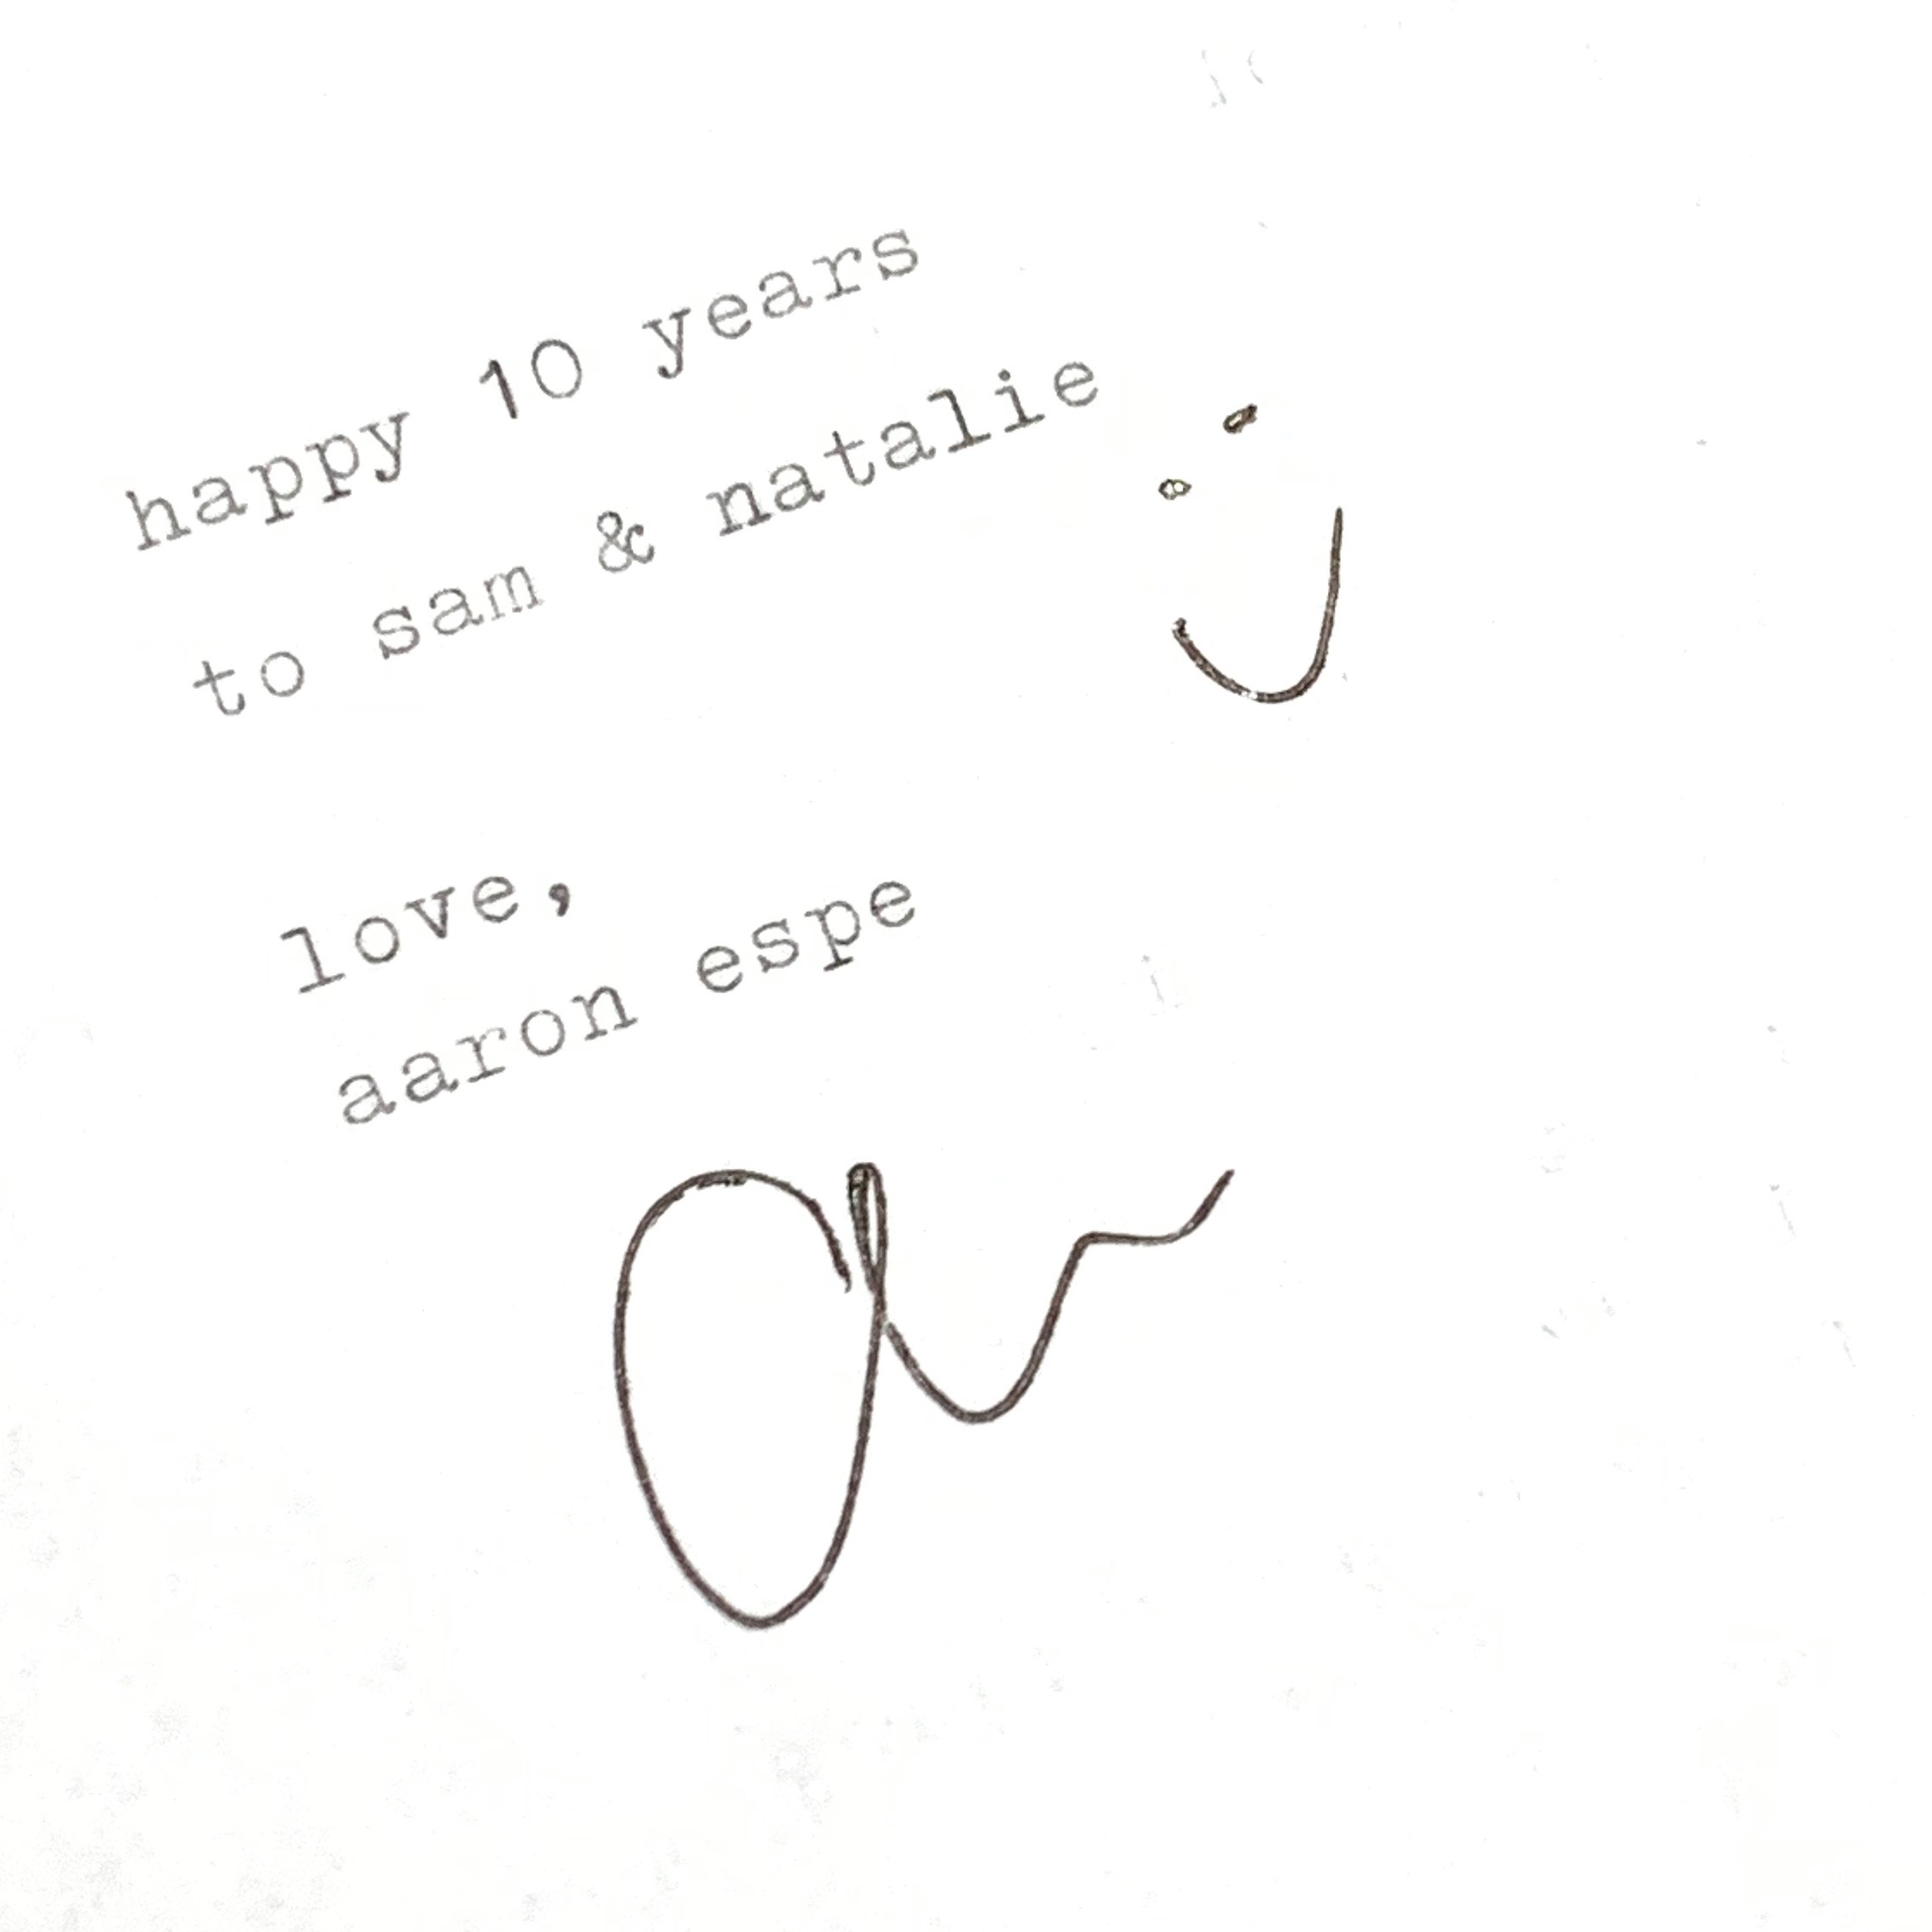 happy 10 years
to sam & natalie
love,
aaron espe